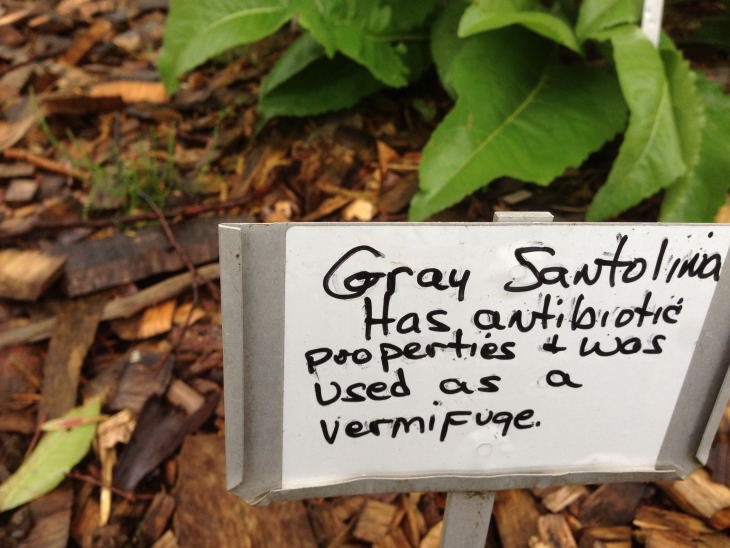 Gray Santolina
Has antibiotic
properties & was
used as a
vermifuge.